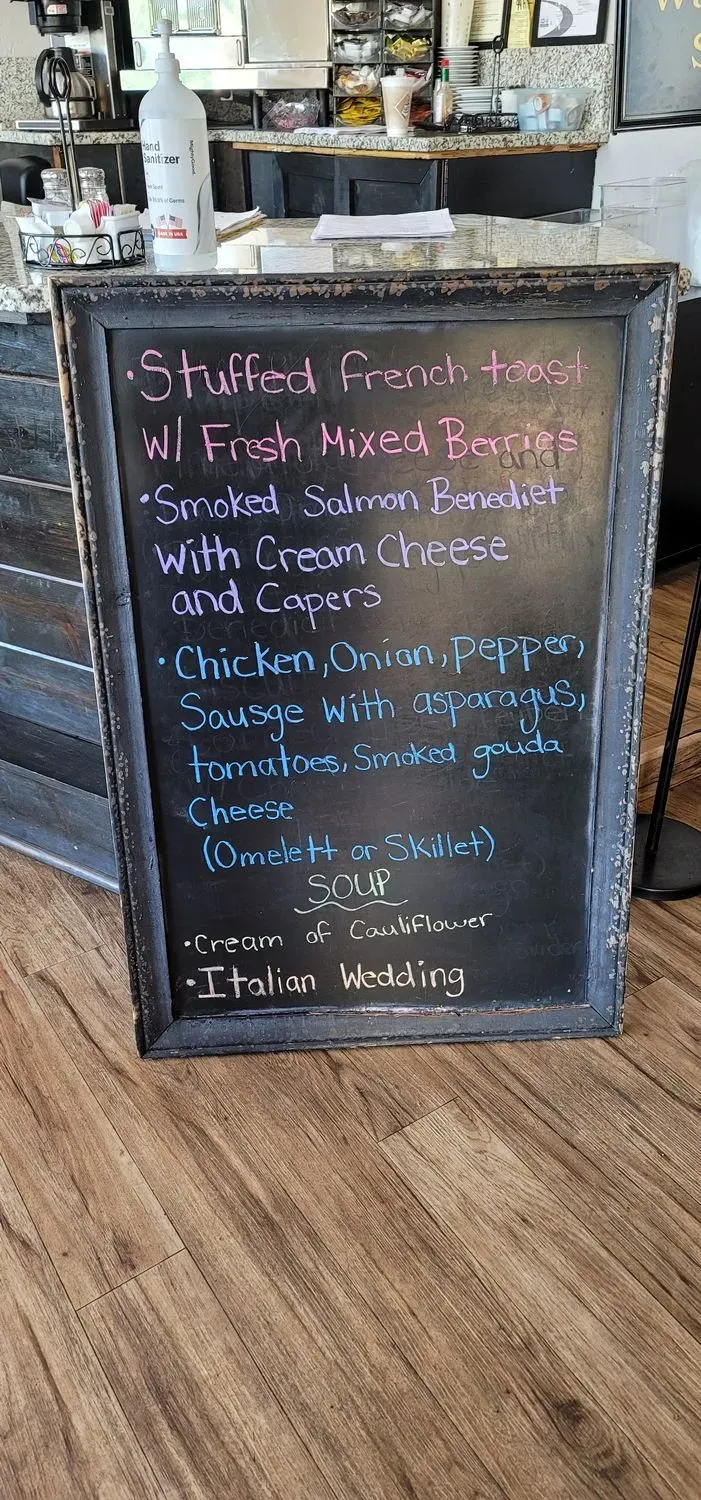 Hand
Sanitizer
MADE IN USA
• Stuffed French toast
W/ Fresh Mixed Berries
and
• Smoked Salmon Benediet
with Cream Cheese
and Capers
• Chicken, Onion, pepper,
Sausge with asparagus,
tomatoes, Smoked gouda
Cheese
(Omelett or Skillet)
SOUP
• Cream of Cauliflower
• Italian Wedding